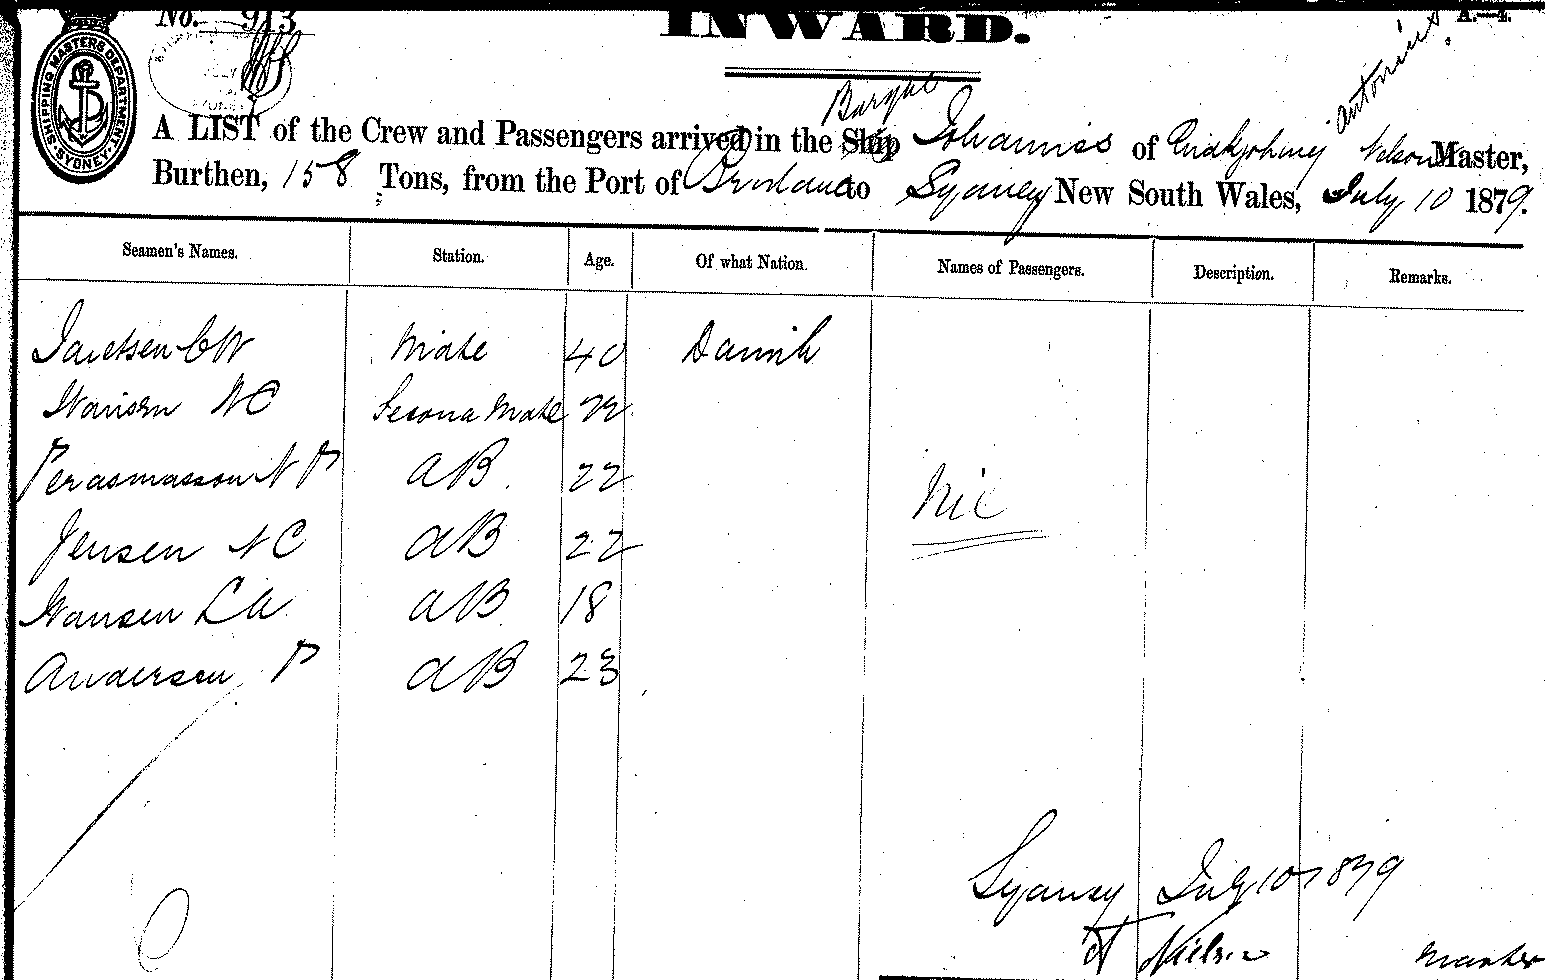 No. 913
INWARD.
A.—4.
SHIPPING MASTERS DEPARTMENT. SYDNEY.
Barque
Antonius
A LIST of the Crew and Passengers arrived in the Ship Johanniss of Nelson Master,
Burthen, 158 Tons, from the Port of to Sydney New South Wales, July 10 1879.
Seamen's Names. Station. Age. Of what Nation. Names of Passengers. Description. Remarks.
CW Mate 40 Danish
Hansen NC Second Mate
Perasmasson N P AB 22
Nil
Jensen NC AB 22
Hansen LA AB 18
Andersen P AB 23
Sydney July 10 1879
A Nielsen Master